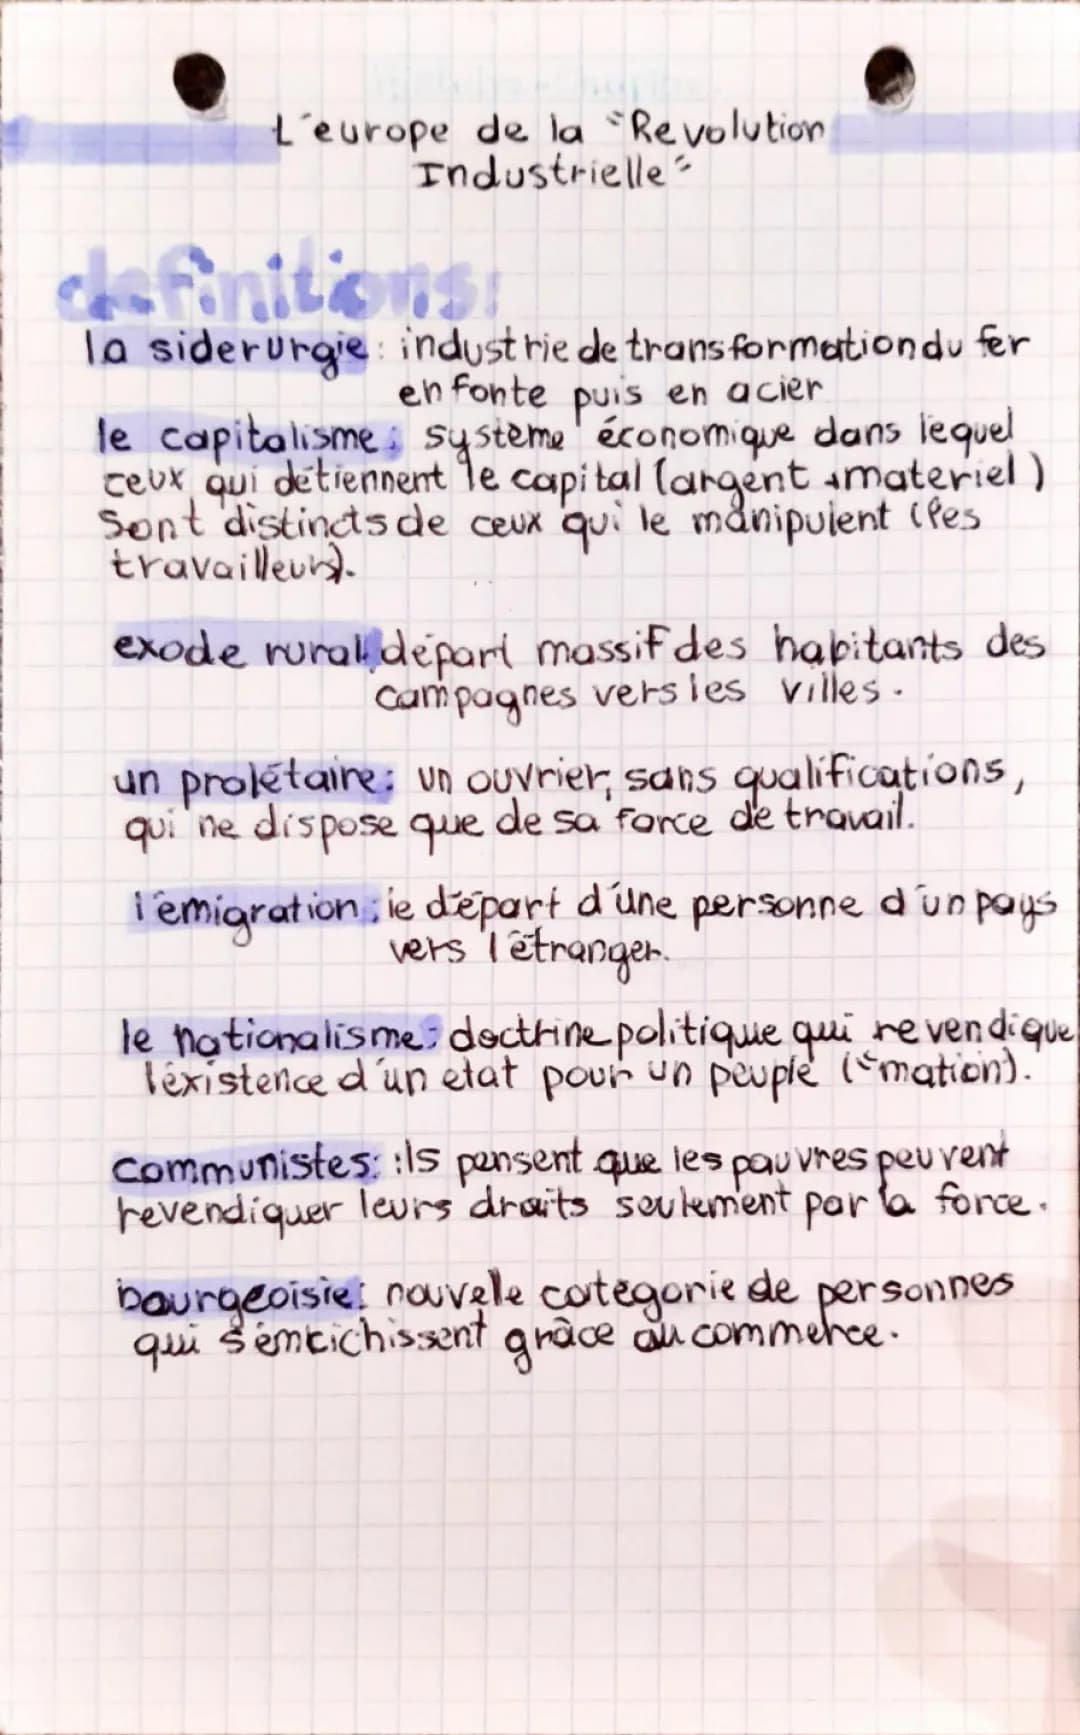 L'europe de la "Revolution
Industrielle"
definitions:
la siderurgie: industrie de transformation du fer
en fonte puis en acier
le capitalisme: système économique dans lequel
ceux qui détiennent le capital (argent + materiel)
sont distincts de ceux qui le manipulent (les
travailleurs).
exode rural: départ massif des habitants des
campagnes vers les villes.
un prolétaire: un ouvrier, sans qualifications,
qui ne dispose que de sa force de travail.
l'émigration: le départ d'une personne d'un pays
vers l'étranger.
le nationalisme: doctrine politique qui revendique
l'éxistence d'un etat pour un peuple ("mation).
communistes: ils pensent que les pauvres peuvent
revendiquer leurs droits seulement par la force.
bourgeoisie: nouvele catégorie de personnes
qui s'enrichissent grâce au commerce.